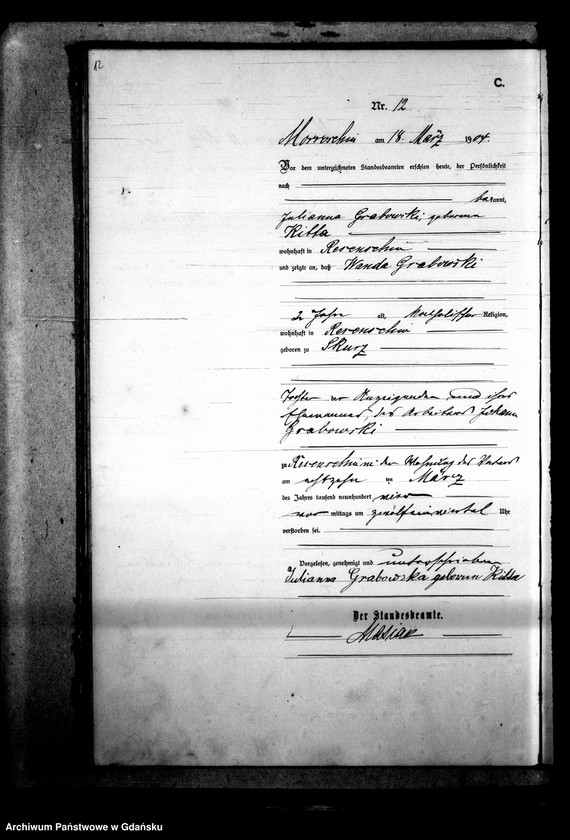 12
C.
Nr. 12
am 18. März 1904.
Vor dem unterzeichneten Standesbeamten erschien heute, der Persönlichkeit
nach
bekannt,
Julianna Grabowski, geborene
Kitta
wohnhaft in
und zeigte an, daß Wanda Grabowski
2 Jahre alt, katholischer Religion,
wohnhaft in
geboren zu Skurz
Tochter der Anzeigenden und ihres
Ehemannes, des Arbeiters Johann
Grabowski
zu in der Wohnung des Vaters
am achtzehn ten März
des Jahres tausend neunhundert vier
vor mittags um zwölfeinviertel Uhr
verstorben sei.
Vorgelesen, genehmigt und unterschrieben
Julianna Grabowska geborene Kitta
Der Standesbeamte.
Archiwum Państwowe w Gdańsku